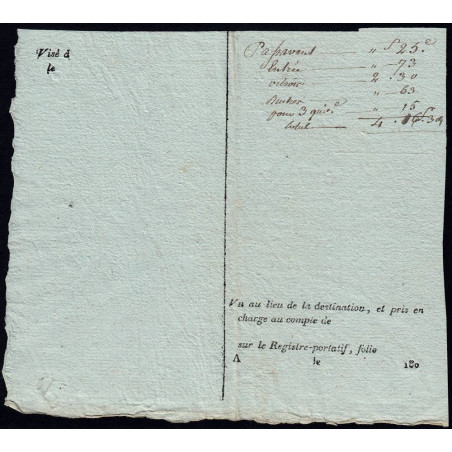 Visé à
le
Passavant — " 25.c
Entrée — " 73
— 2 . 30
— " 63
pour 3 — " 15
total — 4 .
Vu au lieu de la destination, et pris en
charge au compte de
sur le Registre-portatif, folio
A le 180